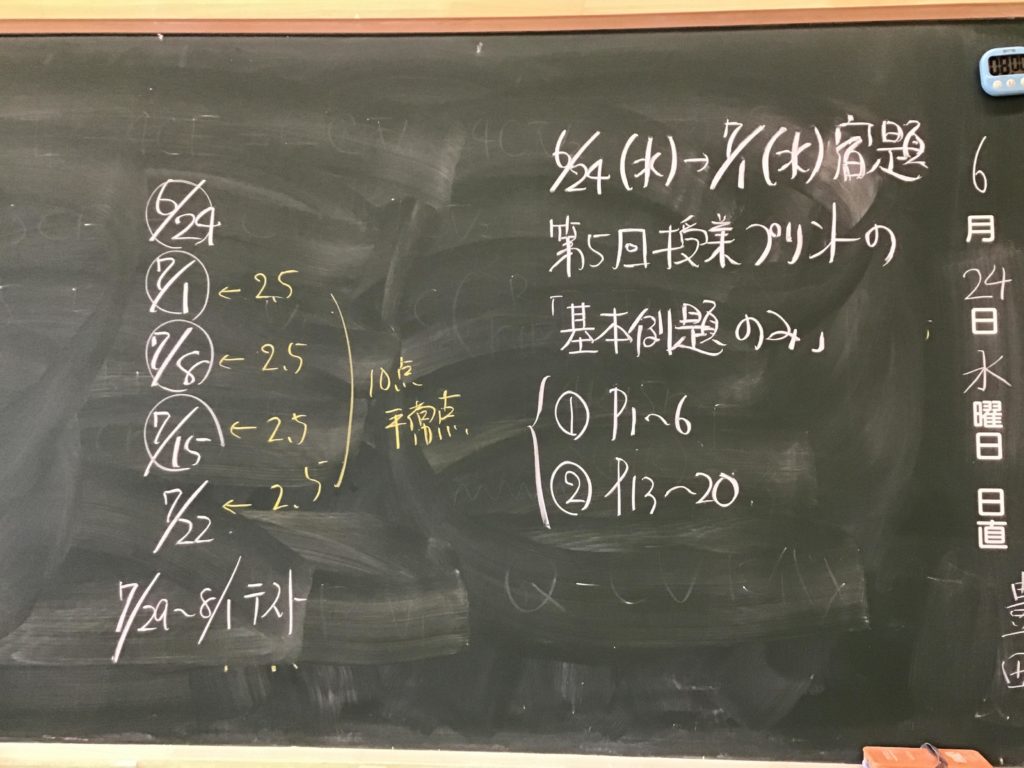 6/24
7/1 ← 2.5
7/8 ← 2.5
7/15 ← 2.5
7/22 ← 2.5
10点
平常点
7/29~8/1 テスト
6/24(水)→7/1(水)宿題
第5回授業プリントの
「基本例題のみ」
① P1~6
② P13~20
6
月
24
日
水
曜
日
日
直
豊
田